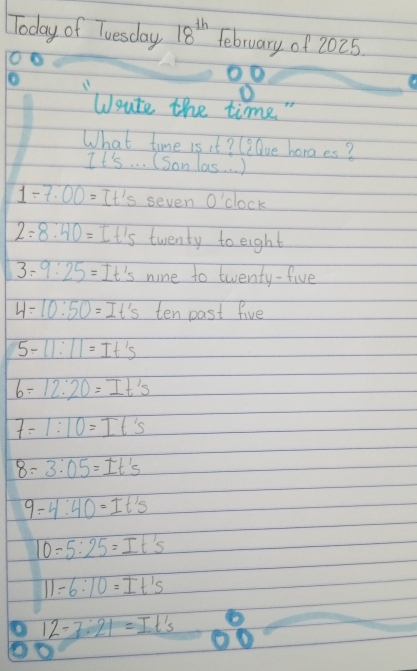 Today of Tuesday 18th february of 2025.
"Wrute the time"
What time is it? (¿Que hora es?
It's... (Son las...)
1-7:00= It's seven O'clock
2-8:40= It's twenty to eight
3-9:25= It's nine to twenty-five
4-10:50= It's ten past five
5-11:11= It's
6-12:20= It's
7-1:10= It's
8-3:05= It's
9-4:40= It's
10-5:25= It's
11-6:10= It's
12-7:21= It's